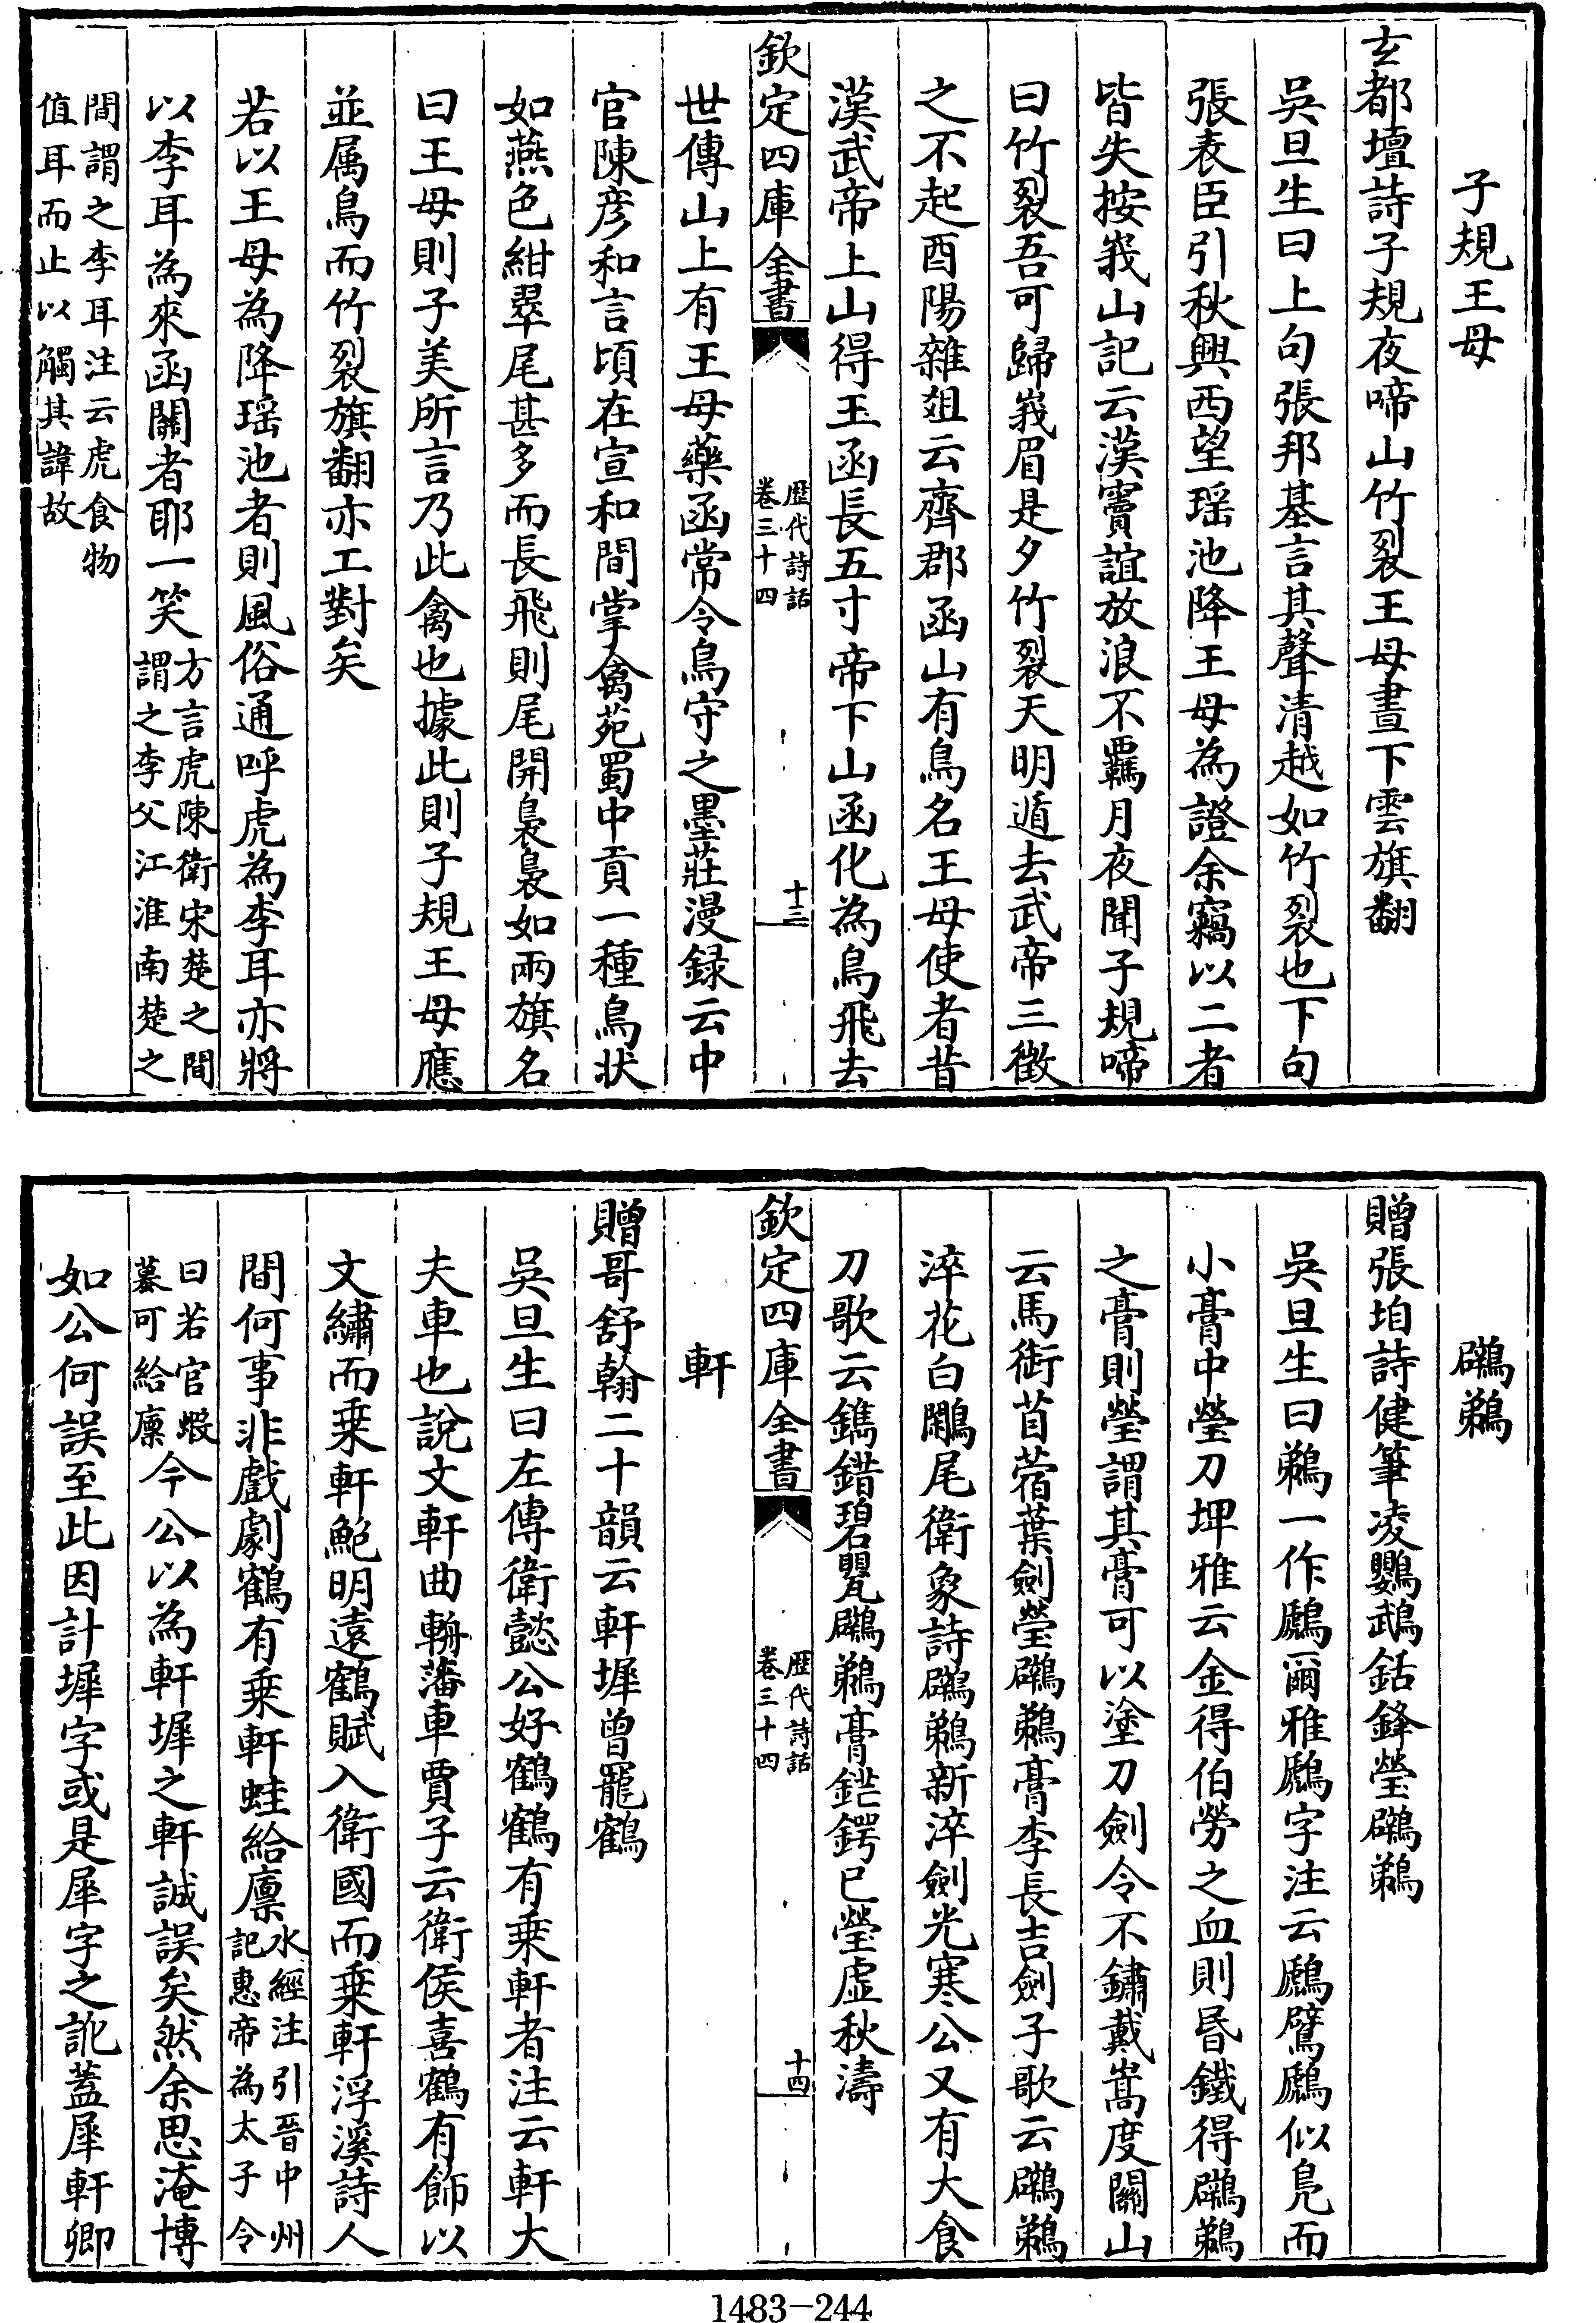 子規王母
玄都壇詩子規夜啼山竹裂王母晝下雲旗翻
吳旦生曰上句張邦基言其聲清越如竹裂也下句
張表臣引秋興西望瑶池降王母為證余竊以二者
皆失按峩山記云漢竇誼放浪不羈月夜聞子規啼
曰竹裂吾可歸峩眉是夕竹裂天明遁去武帝三徵
之不起酉陽雜爼云齊郡函山有鳥名王母使者昔
漢武帝上山得玉函長五寸帝下山函化為鳥飛去
欽定四庫全書
歴代詩話
卷三十四
十三
世傳山上有王母藥函常令鳥守之墨莊漫録云中
官陳彦和言頃在宣和間掌禽苑蜀中貢一種鳥狀
如燕色紺翠尾甚多而長飛則尾開裊裊如兩旗名
曰王母則子美所言乃此禽也據此則子規王母應
並属鳥而竹裂旗翻亦工對矣
若以王母為降瑶池者則風俗通呼虎為李耳亦將
以李耳為來函關者耶一笑方言虎陳衛宋楚之間
謂之李父江淮南楚之
間謂之李耳注云虎食物
值耳而止以觸其諱故
鷿鵜
贈張垍詩健筆凌鸚鵡銛鋒瑩鷿鵜
吳旦生曰鵜一作鷉爾雅鷉字注云鷉鷿鷉似鳬而
小膏中瑩刀埤雅云金得伯勞之血則昏鐵得鷿鵜
之膏則瑩謂其膏可以塗刀劍令不鏽戴嵩度關山
云馬銜苜蓿葉劍瑩鷿鵜膏李長吉劍子歌云鷿鵜
淬花白鷴尾衛象詩鷿鵜新淬劍光寒公又有大食
刀歌云鐫錯碧甖鷿鵜膏鋩鍔已瑩虚秋濤
欽定四庫全書
歴代詩話
卷三十四
十四
軒
贈哥舒翰二十韻云軒墀曾寵鶴
吳旦生曰左傳衛懿公好鶴鶴有乗軒者注云軒大
夫車也說文軒曲輈藩車賈子云衛侯喜鶴有飾以
文繡而乗軒鮑明遠鶴賦入衛國而乗軒浮溪詩人
間何事非戲劇鶴有乗軒蛙給廪水經注引晉中州
記惠帝為太子令
曰若官蝦
蟇可給廪今公以為軒墀之軒誠誤矣然余思淹博
如公何誤至此因計墀字或是犀字之訛蓋犀軒卿
1483-244